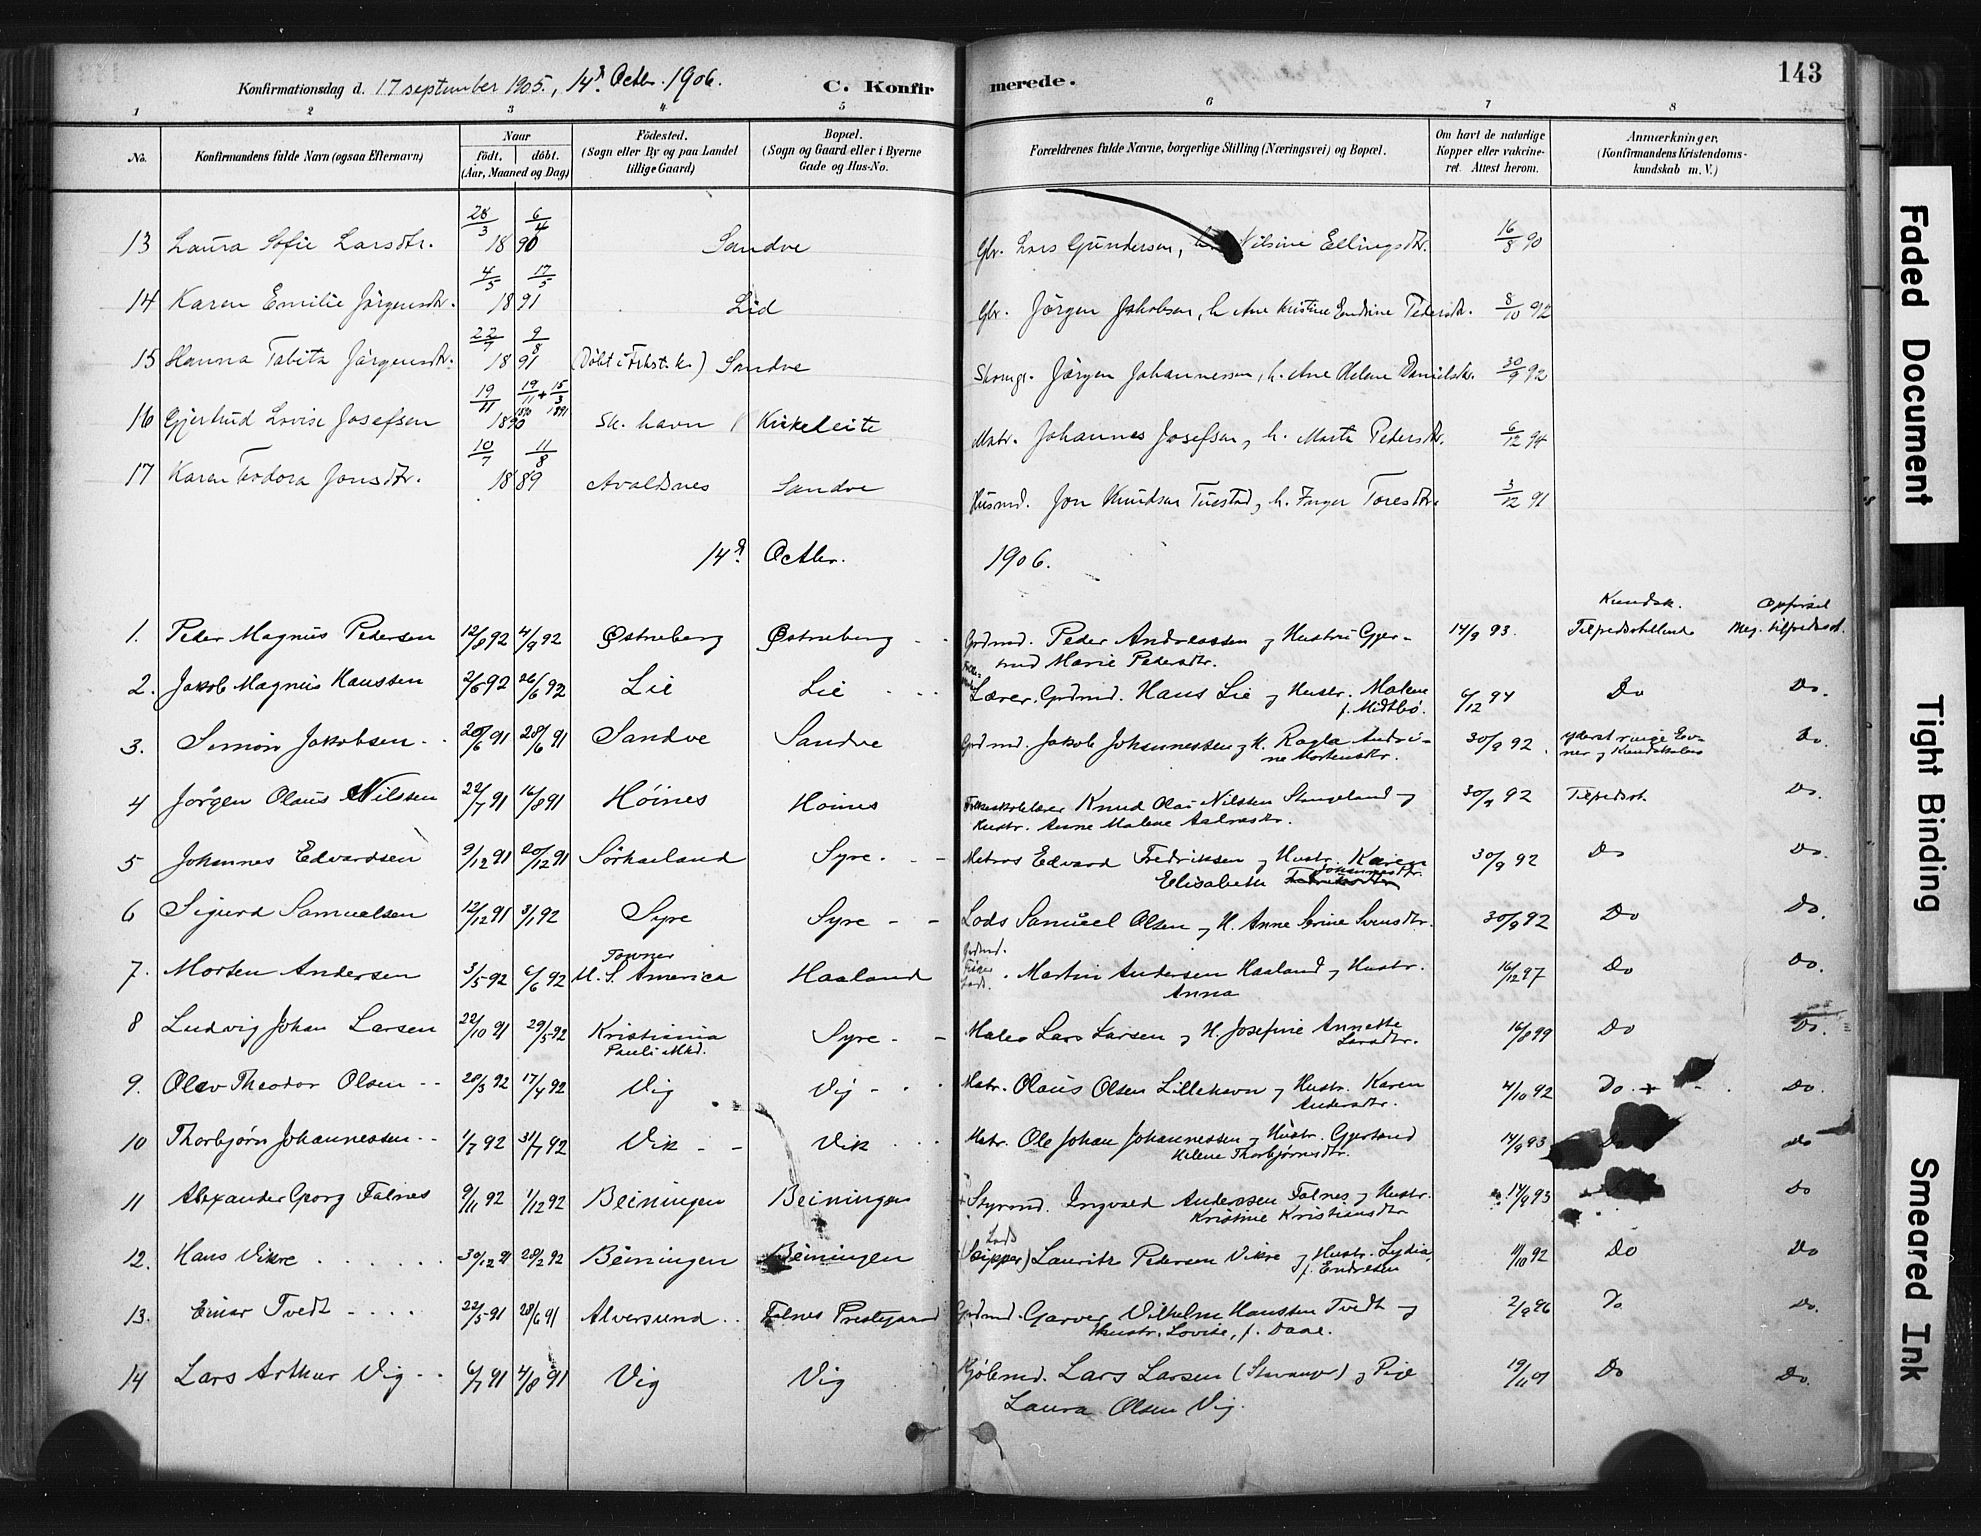 Konfirmationsdag d. 17 september 1905, 14d Octbr. 1906. C. Konfir merede. 143
1 2 3 4 5 6 7 8
No. Konfirmandens fulde Navn (ogsaa Efternavn) Naar født. døbt. (Aar, Maaned og Dag) Fødested. (Sogn eller By og paa Landet tillige Gaard) Bopæl. (Sogn og Gaard eller i Byerne Gade og Hus-No. Forældrenes fulde Navne, borgerlige Stilling (Næringsvei) og Bopæl. Om havt de naturlige Kopper eller vakcineret. Attest herom. Anmærkninger, (Konfirmandens Kristendomskundskab m. V.)
13 Laura Sofie Larsdtr. 28/3 6/4 1890 Sandve Gbr. Lars Gundersen, Nilsine Ellingsdtr. 16/8 90
14 Karen Emilie Jörgensdtr. 4/5 17/5 1891 Lid Gbr. Jörgen Jakobsen, h. Ane Kristine Endrine Pedersdtr. 8/10 92
15 Hanna Tabita Jörgensdtr. 22/7 9/8 1891 Sandve Jörgen Johannessen, h. Ane Helene Danielsdtr. 30/9 92
16 Gjertrud Lovise Josefsen 19/11 19/11 + 15/3 1890 1890 1891 Sk. havn Kirkeleite Matr. Johannes Josefsen, h. Marta Pedersdtr. 6/12 94
17 Karen Todora Jonsdtr. 10/7 11/8 1889 Avaldsnes Sandve Husmd. Jon Knudsen Tuestad, h. Inger Toresdtr. 3/12 91
14d Octbr. 1906.
Kundsk. Opførsel
1. Peder Magnus Pedersen 12/8 92 4/9 92 Østneberg Østneberg Grdmd. Peder Andreassen og Hustru Gjertrud Marie Pedersdtr. 14/9 93. Tilfredsstillende Meg. tilfredsst.
2. Jakob Magnus Hanssen 2/6 92 26/6 92 Lie Lie Lærer. Grdmd. Hans Lie og Hustr. Malene f. Midtbø. 6/12 94 Do Do.
3. Simon Jakobsen 20/6 91 28/6 91 Sandve Sandve Grdmd. Jakob Johannessen og H. Ragla Andrine Mortensdtr. 30/9 92. yderst ringe Evner og Kundskaber Do.
4 Jørgen Olaus Nilssen 22/7 91 16/8 91 Høines Høines Folkeskolelærer Knud Olai Nilssen Stangeland og Hustr. Anne Malene Aslaksdtr. 30/9 92 Tilfredsst. Do.
5 Johannes Edvardsen 9/12 91 20/12 91 Sørhaaland Syre. Matros Edvard Fredriksen og Hustr. Karen Elisabeth Johannesdtr. 30/9 92 Do Do.
6 Sigurd Samuelsen 12/12 91 3/1 92 Syre Syre Lods Samuel Olsen og H. Anne Serine Svensdtr. 30/9 92 Do Do.
7. Morten Andersen 3/5 92 6/6 92 Towner U. S. America Haaland Grdmd. Fisker Lods. Martin Andersen Haaland og Hustr. Anna 16/12 97 Do Do.
8 Ludvig Johan Larsen 22/10 91 29/5 92 Kristiania Pauli Mkd. Syre Maler Lars Larsen og H. Josefine Annette Larsdtr. 16/8 99 Do Do.
9. Olav Theodor Olsen 20/3 92 17/4 92 Vig Vig Matr. Olaus Olsen Lillehavn og Hustr. Karen Andersdtr. 4/10 92 Do. + Do.
10 Thorbjørn Johannessen 1/7 92 31/7 92 Vik Vik Matr. Ole Johan Johannessen og Hustr. Gjertrud Helene Thorbjørnsdtr. 14/9 93 Do Do
11 Alexander Georg Falnes 9/11 92 1/12 92 Beiningen Beiningen Styrmd. Ingvald Andersen Falnes og Hustr. Kristine Kristiansdtr 14/9 93 Do
12. Hans Vikre 30/12 91 28/2 92 Beiningen Beiningen Lods (Skipper) Laurits Pedersen Vikre og Hustr. Lydia, f. Endresen 11/10 92 Do Do
13. Einar Tvedt 22/5 91 28/6 91 Alversund Falnes Prestegaard Grdmd. Garver Vilhelm Hanssen Tvedt og Hustr. Lovise, f. Daae. 2/9 96 Do Do.
14 Lars Arthur Vig 6/7 91 4/8 91 Vig Vig Kjøbmd. Lars Larsen (Stavanger) og Pige Laura Olsen Vig. 19/11 01 Do Do.
Faded Document
Tight Binding
Smeared Ink